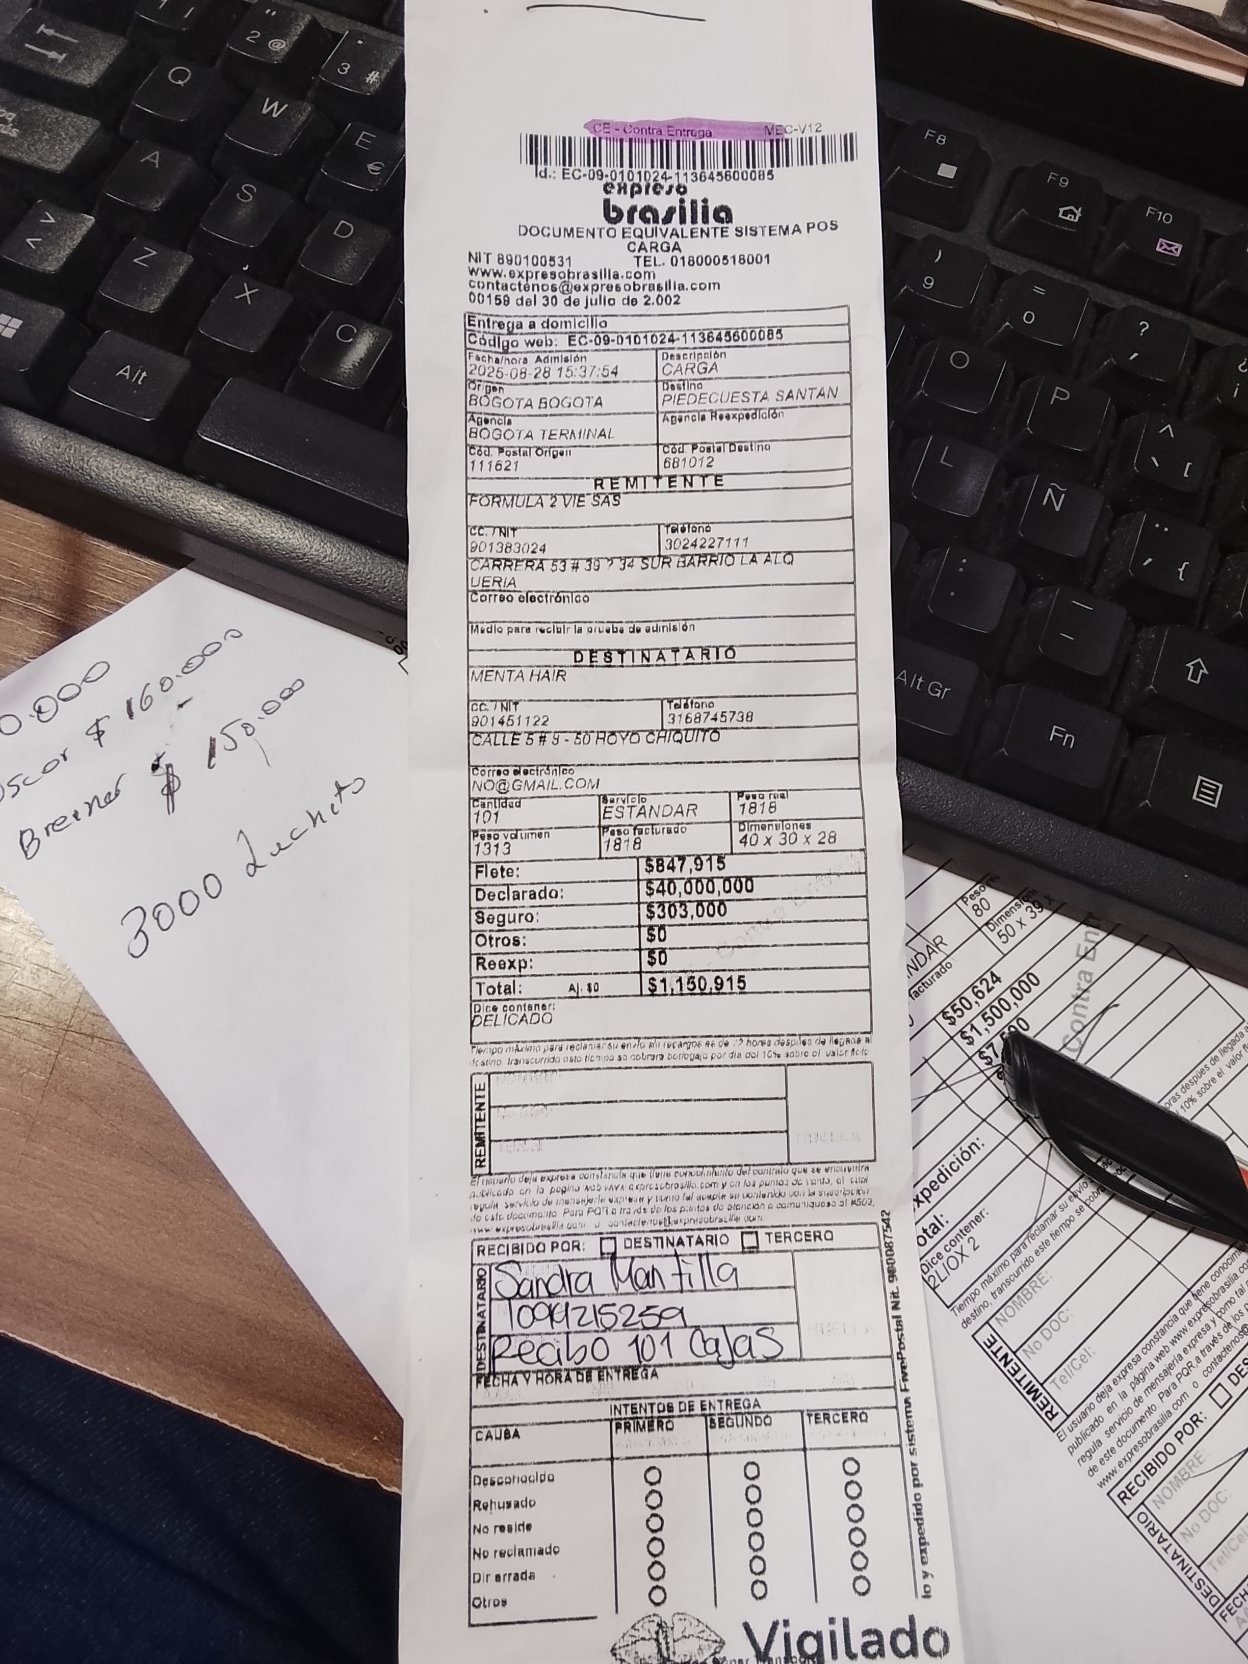 CE - Contra Entrega MEC-V12
Id.: EC-09-0101024-113645600085
expreso
brasilia
DOCUMENTO EQUIVALENTE SISTEMA POS
CARGA
NIT 890100531 TEL. 018000518001
www.expresobrasilia.com
contactenos@expresobrasilia.com
00159 del 30 de julio de 2.002
Entrega a domicilio
Código web: EC-09-0101024-113645600085
Fecha/hora Admisión Descripción
2025-08-28 15:37:54 CARGA
Origen Destino
BOGOTA BOGOTA PIEDECUESTA SANTAN
Agencia Agencia Reexpedición
BOGOTA TERMINAL
Cód. Postal Origen Cód. Postal Destino
111621 681012
REMITENTE
FORMULA 2 VIE SAS
CC. / NIT Teléfono
901383024 3024227111
CARRERA 53 # 39 ? 34 SUR BARRIO LA ALQ
UERIA
Correo electrónico
Medio para recibir la prueba de admisión
DESTINATARIO
MENTA HAIR
CC. / NIT Teléfono
901451122 3168745738
CALLE 5 # 9 - 50 HOYO CHIQUITO
Correo electrónico
NO@GMAIL.COM
Cantidad Servicio Peso real
101 ESTANDAR 1818
Peso volumen Peso facturado Dimensiones
1313 1818 40 x 30 x 28
Flete: $847,915
Declarado: $40,000,000
Seguro: $303,000
Otros: $0
Reexp: $0
Total: Aj. $0 $1,150,915
Dice contener:
DELICADO
Tiempo máximo para reclamar su envío sin recargos es de 72 horas después de llegada al
destino, transcurrido este tiempo se cobrara bodegaje por día del 10% sobre el valor flete
REMITENTE
El usuario deja expresa constancia que tiene conocimiento del contrato que se encuentra
publicado en la página web www.expresobrasilia.com y en los puntos de venta, el cual
regula servicio de mensajería expresa y como tal acepta su contenido con la suscripción
de este documento. Para PQR a través de los puntos de atención o comuniquese al #502,
www.expresobrasilia.com o contactenos@expresobrasilia.com.
RECIBIDO POR: DESTINATARIO TERCERO
DESTINATARIO
Sandra Mantilla
1094215259
Recibo 101 Cajas
FECHA Y HORA DE ENTREGA
INTENTOS DE ENTREGA
CAUSA PRIMERO SEGUNDO TERCERO
Desconocido
Rehusado
No reside
No reclamado
Dir errada
Otros
lo y expedido por sistema FivePostal Nit. 900087542
Vigilado
0.000
Oscar $ 160.000
Breiner $ 150.000
3000 Luchets
NDAR
facturado
Peso re
80
Dimension
50 x 39 x
$50,624
$1,500,000
Contra En
xpedición:
otal:
Dice contener:
2LIOX 2
Tiempo máximo para reclamar su envío
destino, transcurrido este tiempo se cobra
oras después de llegada
10% sobre el valor
REMITENTE
NOMBRE:
No DOC:
Tel/Cel:
El usuario deja expresa constancia que tiene conocim
publicado en la página web www.expresobrasilia.co
regula servicio de mensajería expresa y como tal
de este documento. Para PQR a través de los
www.expresobrasilia.com o contactenos@
RECIBIDO POR: DES
DESTINATARIO
NOMBRE:
No DOC:
Tel/Cel
FECH
2 @
3 #
Q
W
E €
A
S
D
Z
X
C
Alt
F8
F9
F10
) 9
= 0
?
O
P
L
Ñ
Alt Gr
Fn